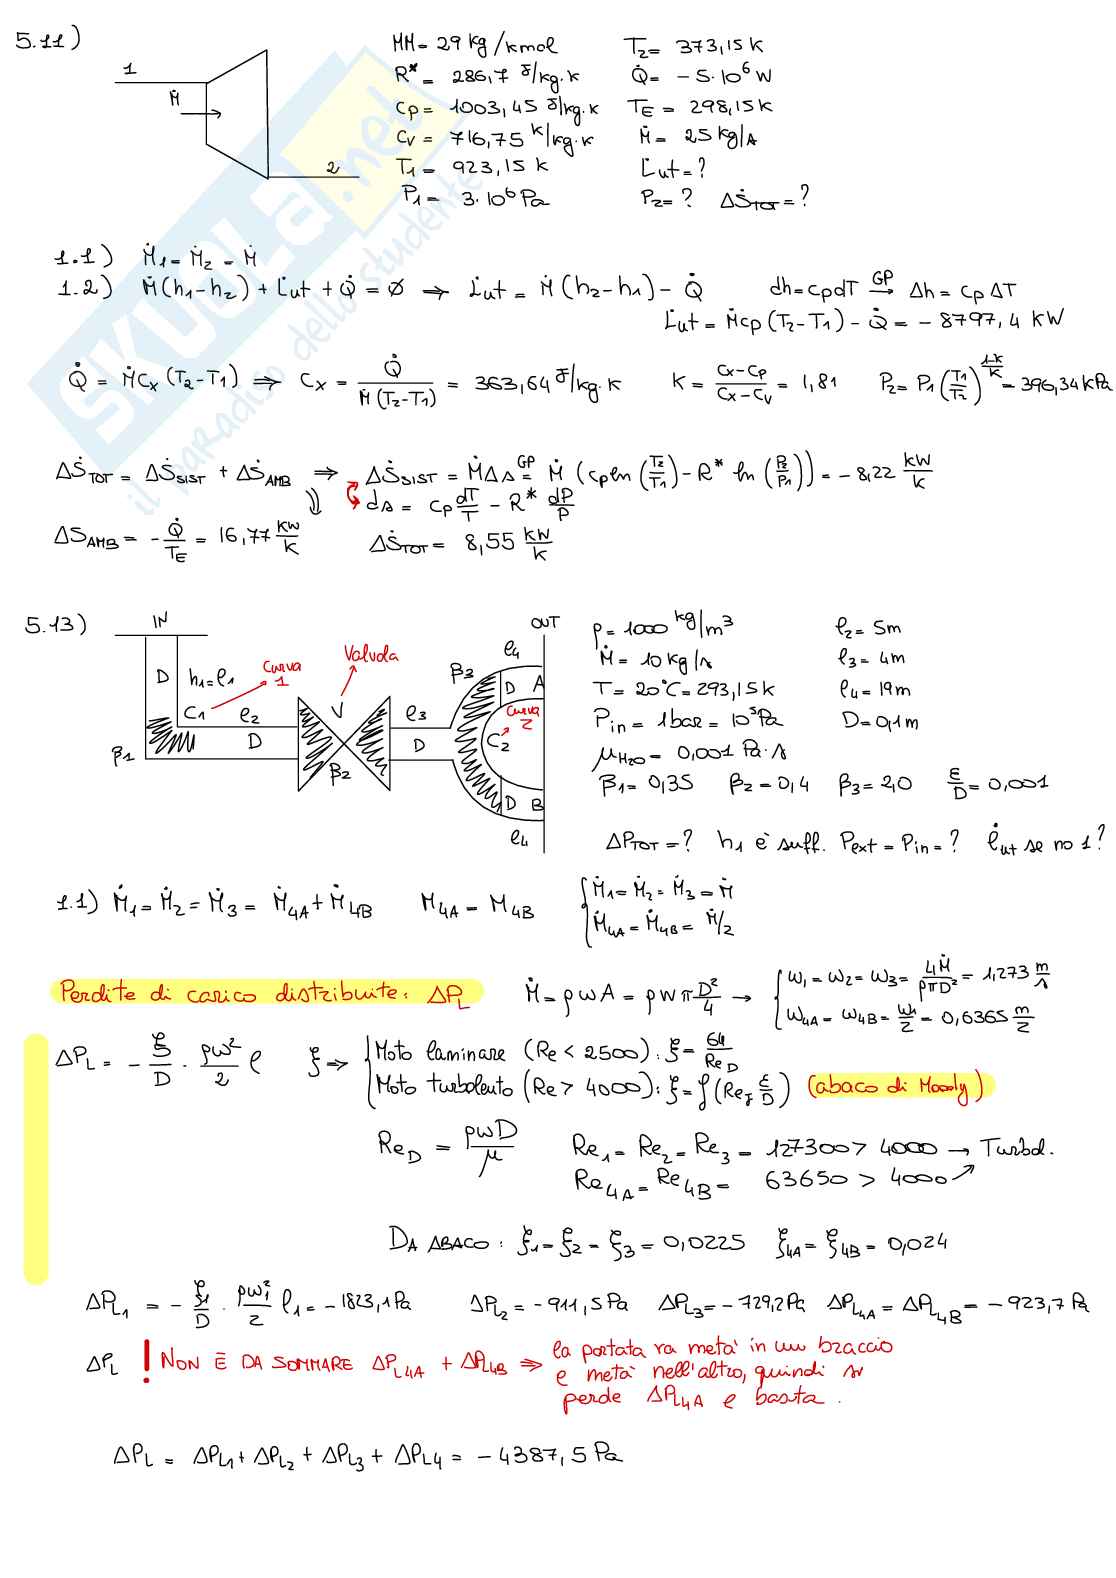 5.11)
1
Ṁ
2
MM = 29 kg/kmol
R* = 286,7 J/kg·K
cp = 1003,45 J/kg·K
cv = 716,75 K/kg·K
T1 = 923,15 K
P1 = 3·10⁶ Pa
T2 = 373,15 K
Q̇ = -5·10⁶ W
TE = 298,15 K
Ṁ = 25 kg/s
L̇ut = ?
P2 = ? ΔṠTOT = ?
SKUOLA.net
il paradiso dello studente
1.1) Ṁ1 = Ṁ2 = Ṁ
1.2) Ṁ(h1-h2) + L̇ut + Q̇ = ∅ ⇒ L̇ut = Ṁ(h2-h1) - Q̇ dh = cpdT GP→ Δh = cpΔT
L̇ut = Ṁcp(T2-T1) - Q̇ = -8797,4 KW
Q̇ = Ṁcx(T2-T1) ⇒ cx = Q̇/Ṁ(T2-T1) = 363,64 J/kg·K K = cx-cp/cx-cv = 1,81 P2 = P1(T1/T2)^(1-K/K) = 396,34 kPa
ΔṠTOT = ΔṠSIST + ΔṠAMB ⇒ ΔṠSIST = ṀΔs GP= Ṁ(cp ln(T2/T1) - R* ln(P2/P1)) = -8,22 kW/K
ds = cp dT/T - R* dP/P
ΔSAMB = -Q̇/TE = 16,77 kW/K ΔṠTOT = 8,55 kW/K
5.13)
IN
OUT
D
h1=l1
Curva 1
Valvola
C1
l2
D
β1
V
β2
l3
D
β3
l4
D A
Curva 2
C2
D B
l4
ρ = 1000 kg/m³
Ṁ = 10 kg/s
T = 20°C = 293,15 K
Pin = 1 bar = 10⁵ Pa
μH2O = 0,001 Pa·s
l2 = 5m
l3 = 4m
l4 = 19m
D = 0,1m
β1 = 0,35 β2 = 0,4 β3 = 2,0 ε/D = 0,001
ΔPTOT = ? h1 è suff. Pext = Pin = ? L̇ut se no 1?
1.1) Ṁ1 = Ṁ2 = Ṁ3 = Ṁ4A + Ṁ4B M4A = M4B { Ṁ1 = Ṁ2 = Ṁ3 = Ṁ
Ṁ4A = Ṁ4B = Ṁ/2
Perdite di carico distribuite: ΔPL
Ṁ = ρwA = ρwπD²/4 → { w1 = w2 = w3 = 4Ṁ/ρπD² = 1,273 m/s
w4A = w4B = w1/2 = 0,6365 m/2
ΔPL = -ξ/D · ρw²/2 l ξ ⇒ { Moto laminare (Re < 2500): ξ = 64/ReD
Moto turbolento (Re > 4000): ξ = f(Re; ε/D) (abaco di Moody)
ReD = ρwD/μ Re1 = Re2 = Re3 = 127300 > 4000 → Turbol.
Re4A = Re4B = 63650 > 4000
DA ABACO: ξ1 = ξ2 = ξ3 = 0,0225 ξ4A = ξ4B = 0,024
ΔPL1 = -ξ1/D · ρw1²/2 l1 = -1823,1 Pa ΔPL2 = -911,5 Pa ΔPL3 = -729,2 Pa ΔPL4A = ΔPL4B = -923,7 Pa
ΔPL ! NON È DA SOMMARE ΔPL4A + ΔPL4B ⇒ la portata va metà in un braccio
e metà nell'altro, quindi si
perde ΔPL4A e basta.
ΔPL = ΔPL1 + ΔPL2 + ΔPL3 + ΔPL4 = -4387,5 Pa